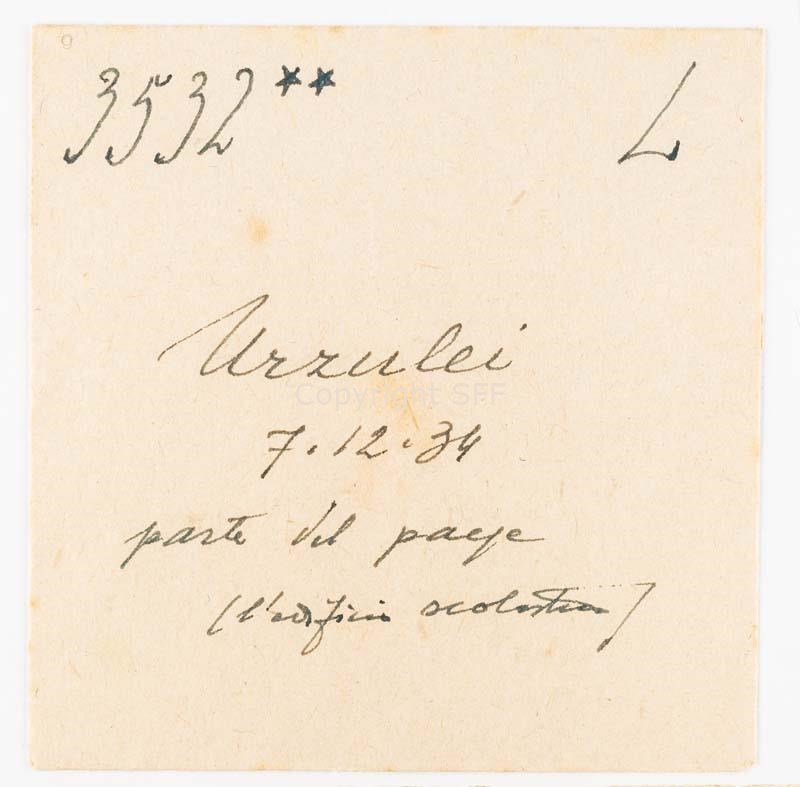 9
3532** L
Urzulei
Copyright SFF
7.12.34
parte del paese
(l'edificio scolastico)